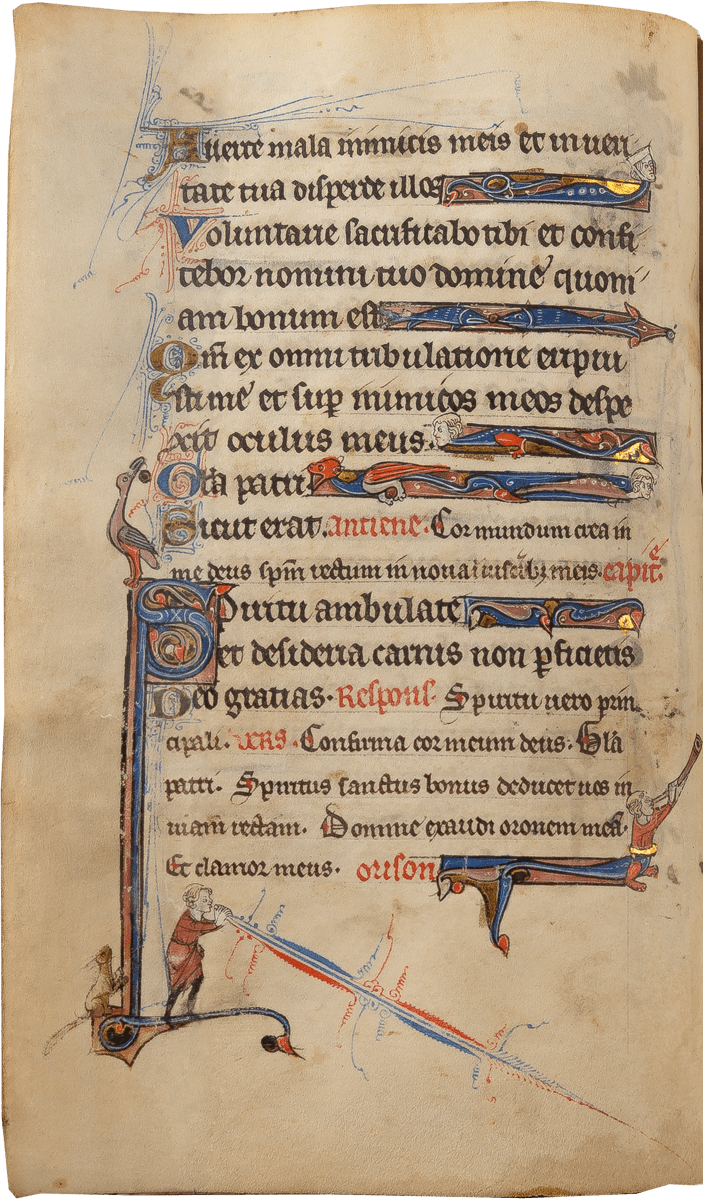 Auerte mala inimicis meis et in ueri
tate tua disperde illos
Voluntarie sacrificabo tibi et confi
tebor nomini tuo domine quoni
am bonum est
Qm̄ ex omni tribulatione eripui
sti me et sup̄ inimicos meos despe
xit oculus meus.
Gl̄a patri
Sicut erat. antiene. Cor mundum crea in
me deus sp̄m rectum in noua in uiscīb3 meis. capitᵉ.
Spiritu ambulate
et desideria carnis non ꝑficietis
Deo gratias. Respons. Spiritu uero prin
cipali. vers. Confirma cor meum deus. Gl̄a
patri. Spiritus sanctus bonus deducet uos in
uiam rectam. Domine exaudi or̄onem meā.
Et clamor meus. orison